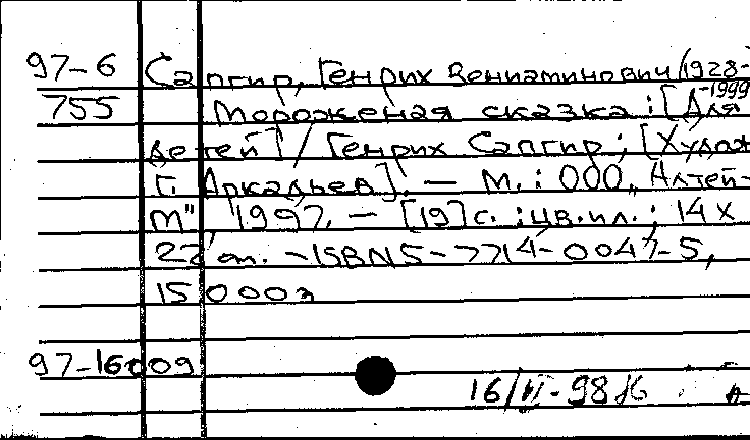 97-6 Сапгир, Генрих Вениаминович (1928-
-1999
755 Мороженая сказка : [Для
детей] / Генрих Сапгир ; [Худож.
Г. Аркадьев]. — М. : ООО "Алтей-
М", 1997. — [19] с. : цв. ил. ; 14 х
22 см. — ISBN 5-7714-0047-5,
15000э
97-16009
16/VI-98